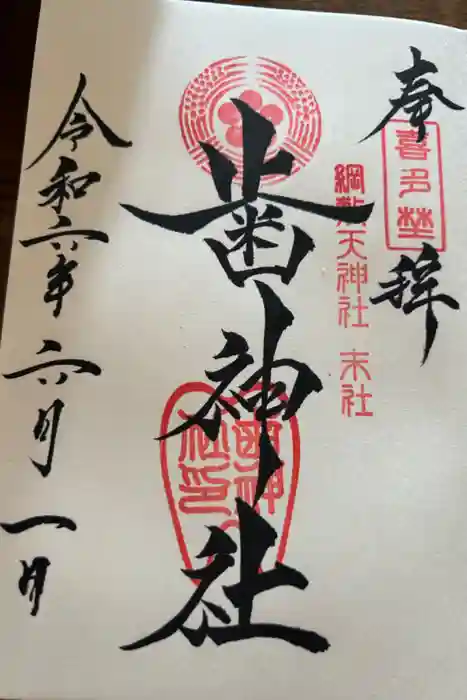 奉拝
喜多埜
綱敷天神社 末社
歯神社
歯神社印
令和六年六月一日